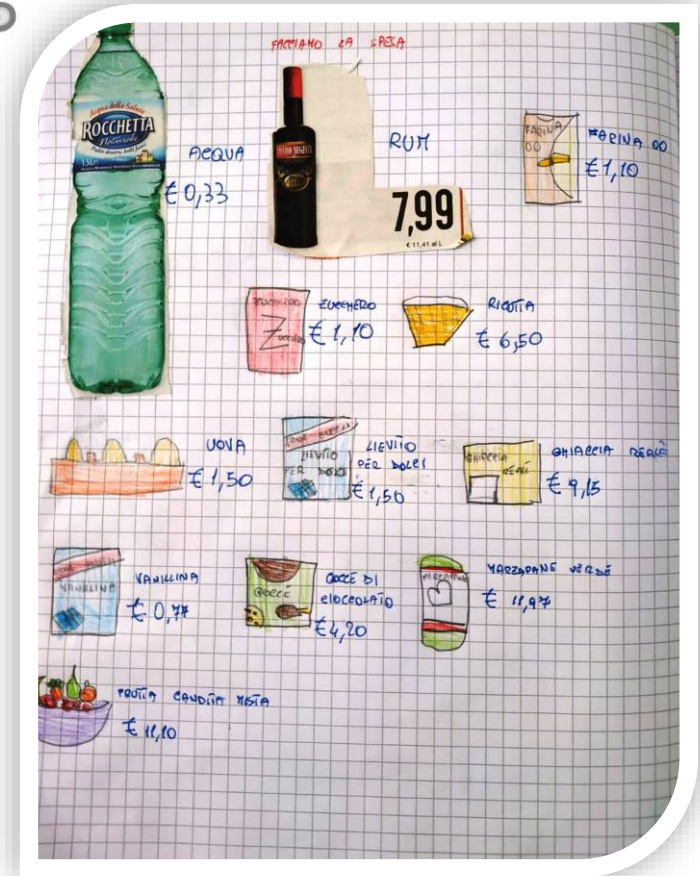 FACCIAMO LA SPESA
Acqua della Salute
ROCCHETTA
Naturale
Puliti dentro, belli fuori
1,5L e
ACQUA
€ 0,33
RUM
7,99
€ 11,41 al L
FARINA
00
FARINA 00
€ 1,10
ZUCCHERO
Zucchero
ZUCCHERO
€ 1,10
RICOTTA
€ 6,50
UOVA
€ 1,50
LIEVITO
PER DOLCI
LIEVITO
PER DOLCI
€ 1,50
GHIACCIA
REALE
GHIACCIA REALE
€ 9,15
VANILLINA
VANILLINA
€ 0,77
GOCCE
GOCCE DI
CIOCCOLATO
€ 4,20
MARZAPANE
MARZAPANE VERDE
€ 11,97
FRUTTA CANDITA MISTA
€ 11,10